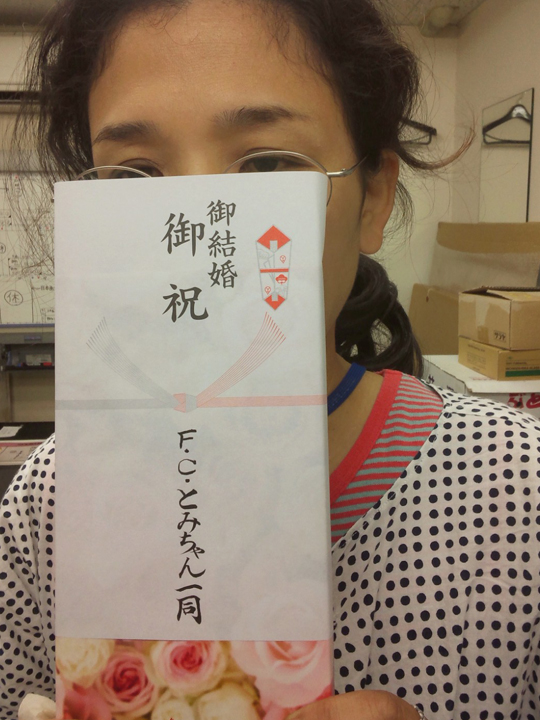 御結婚
御祝
F.C.とみちゃん一同
休